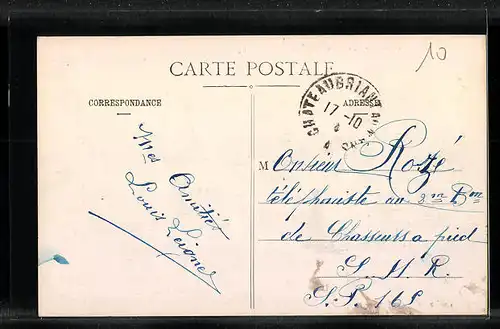 10
CARTE POSTALE
CORRESPONDANCE
ADRESSE
CHATEAUBRIANT
17 -10
Mes Amitiés
Louis
Monsieur Rozé
téléphoniste au 2m Bm
de Chasseurs a pied
S. M. R.
S.P. 165